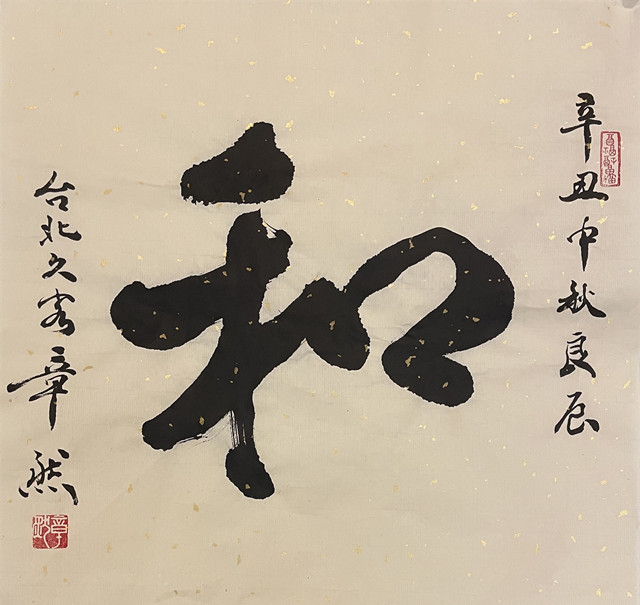 辛丑中秋良辰
和
台北久客章然